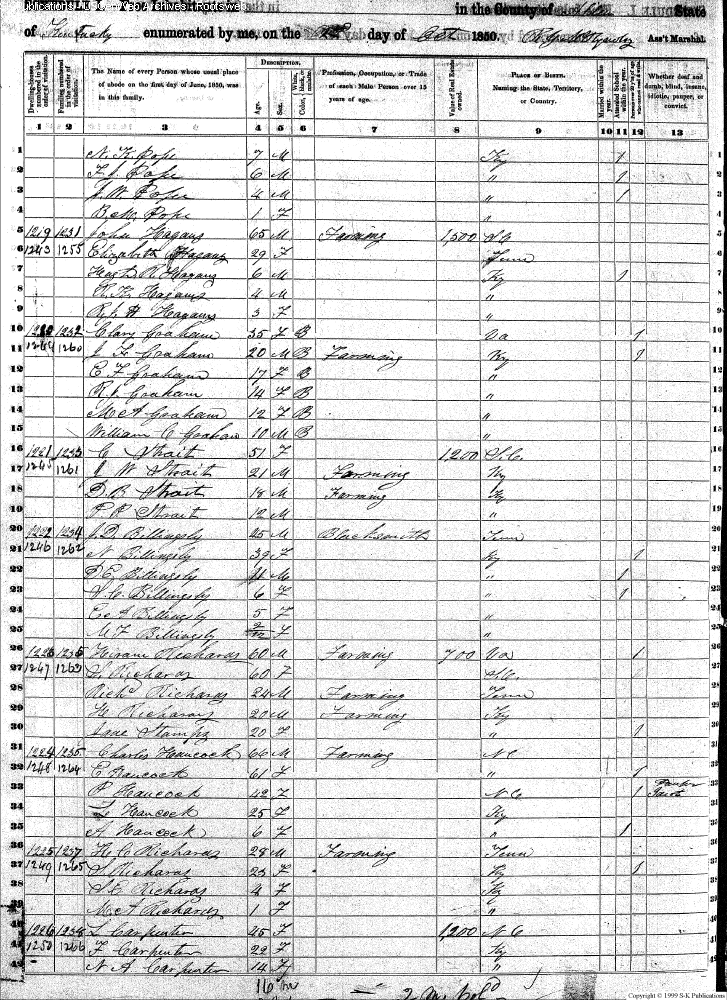 in the County of State
of Kentucky enumerated by me, on the day of Oct 1850. Ass't Marshal.
Dwelling-houses numbered in the order of visitation.
Families numbered in the order of visitation.
The Name of every Person whose usual place of abode on the first day of June, 1850, was in this family.
DESCRIPTION.
Age.
Sex.
Color, White, black, or mulatto.
Profession, Occupation, or Trade of each Male Person over 15 years of age.
Value of Real Estate owned.
PLACE OF BIRTH. Naming the State, Territory, or Country.
Married within the year.
Attended School within the year.
Whether deaf and dumb, blind, insane, idiotic, pauper, or convict.
1 2 3 4 5 6 7 8 9 10 11 12 13
1 N. K. Pope 7 M Ky 1
2 F. J. Pope 6 M " 1
3 J. W. Pope 4 M " 1
4 B. M. Pope 1 F "
5 1219 1231 John Hagans 65 M Farming 1,500 S.C.
6 1243 1255 Elizabeth Hagans 29 F Tenn
7 Hugh R. Hagans 6 M Ky 1
8 R. K. Hagans 4 M "
9 R. J. H Hagans 3 F "
10 1220 1232 Clary Graham 35 F B Va 1
11 1244 1260 J. F. Graham 20 M B Farming Ky 1
12 E F Graham 17 F B "
13 R. J. Graham 14 F B "
14 M A Graham 12 F B "
15 William C Graham 10 M B "
16 1221 1233 C Strait 51 F 1,200 S.C.
17 1245 1261 J W Strait 21 M Farming Ky
18 D. B Strait 18 M Farming Ky
19 P. P. Strait 12 M "
20 1222 1234 J. D Billingsly 45 M Blacksmith Tenn
21 1246 1262 N Billingsly 39 F Ky 1
22 D E. Billingsly 11 M " 1
23 S. C. Billingsly 6 F " 1
24 E A Billingsly 5 F "
25 M. F. Billingsly 2/12 F "
26 1223 1235 Hiram Richards 60 M Farming 700 Va 1
27 1247 1263 S. Richards 60 F S.C.
28 Richd Richards 24 M Farming Tenn
29 H. Richards 20 M Farming Ky
30 Jane Stamps 20 F " 1
31 1224 1235 Charles Hancock 66 M Farming N C
32 1248 1264 E Hancock 61 F " 1
33 P. Hancock 42 F N C 1 Pauper
34 L. Hancock 25 F Ky
35 A. Hancock 6 F Tenn 1
36 1225 1237 H. C. Richards 28 M Farming Tenn
37 1249 1265 S Richards 23 F Ky 1
38 S. E. Richards 4 F Ky
39 M A Richards 1 F "
40 1226 1238 L Carpenter 45 F 1,200 N C
41 1250 1266 F Carpenter 22 F Ky
42 N A Carpenter 14 F "
16
Copyright © 1999 S-K Publications